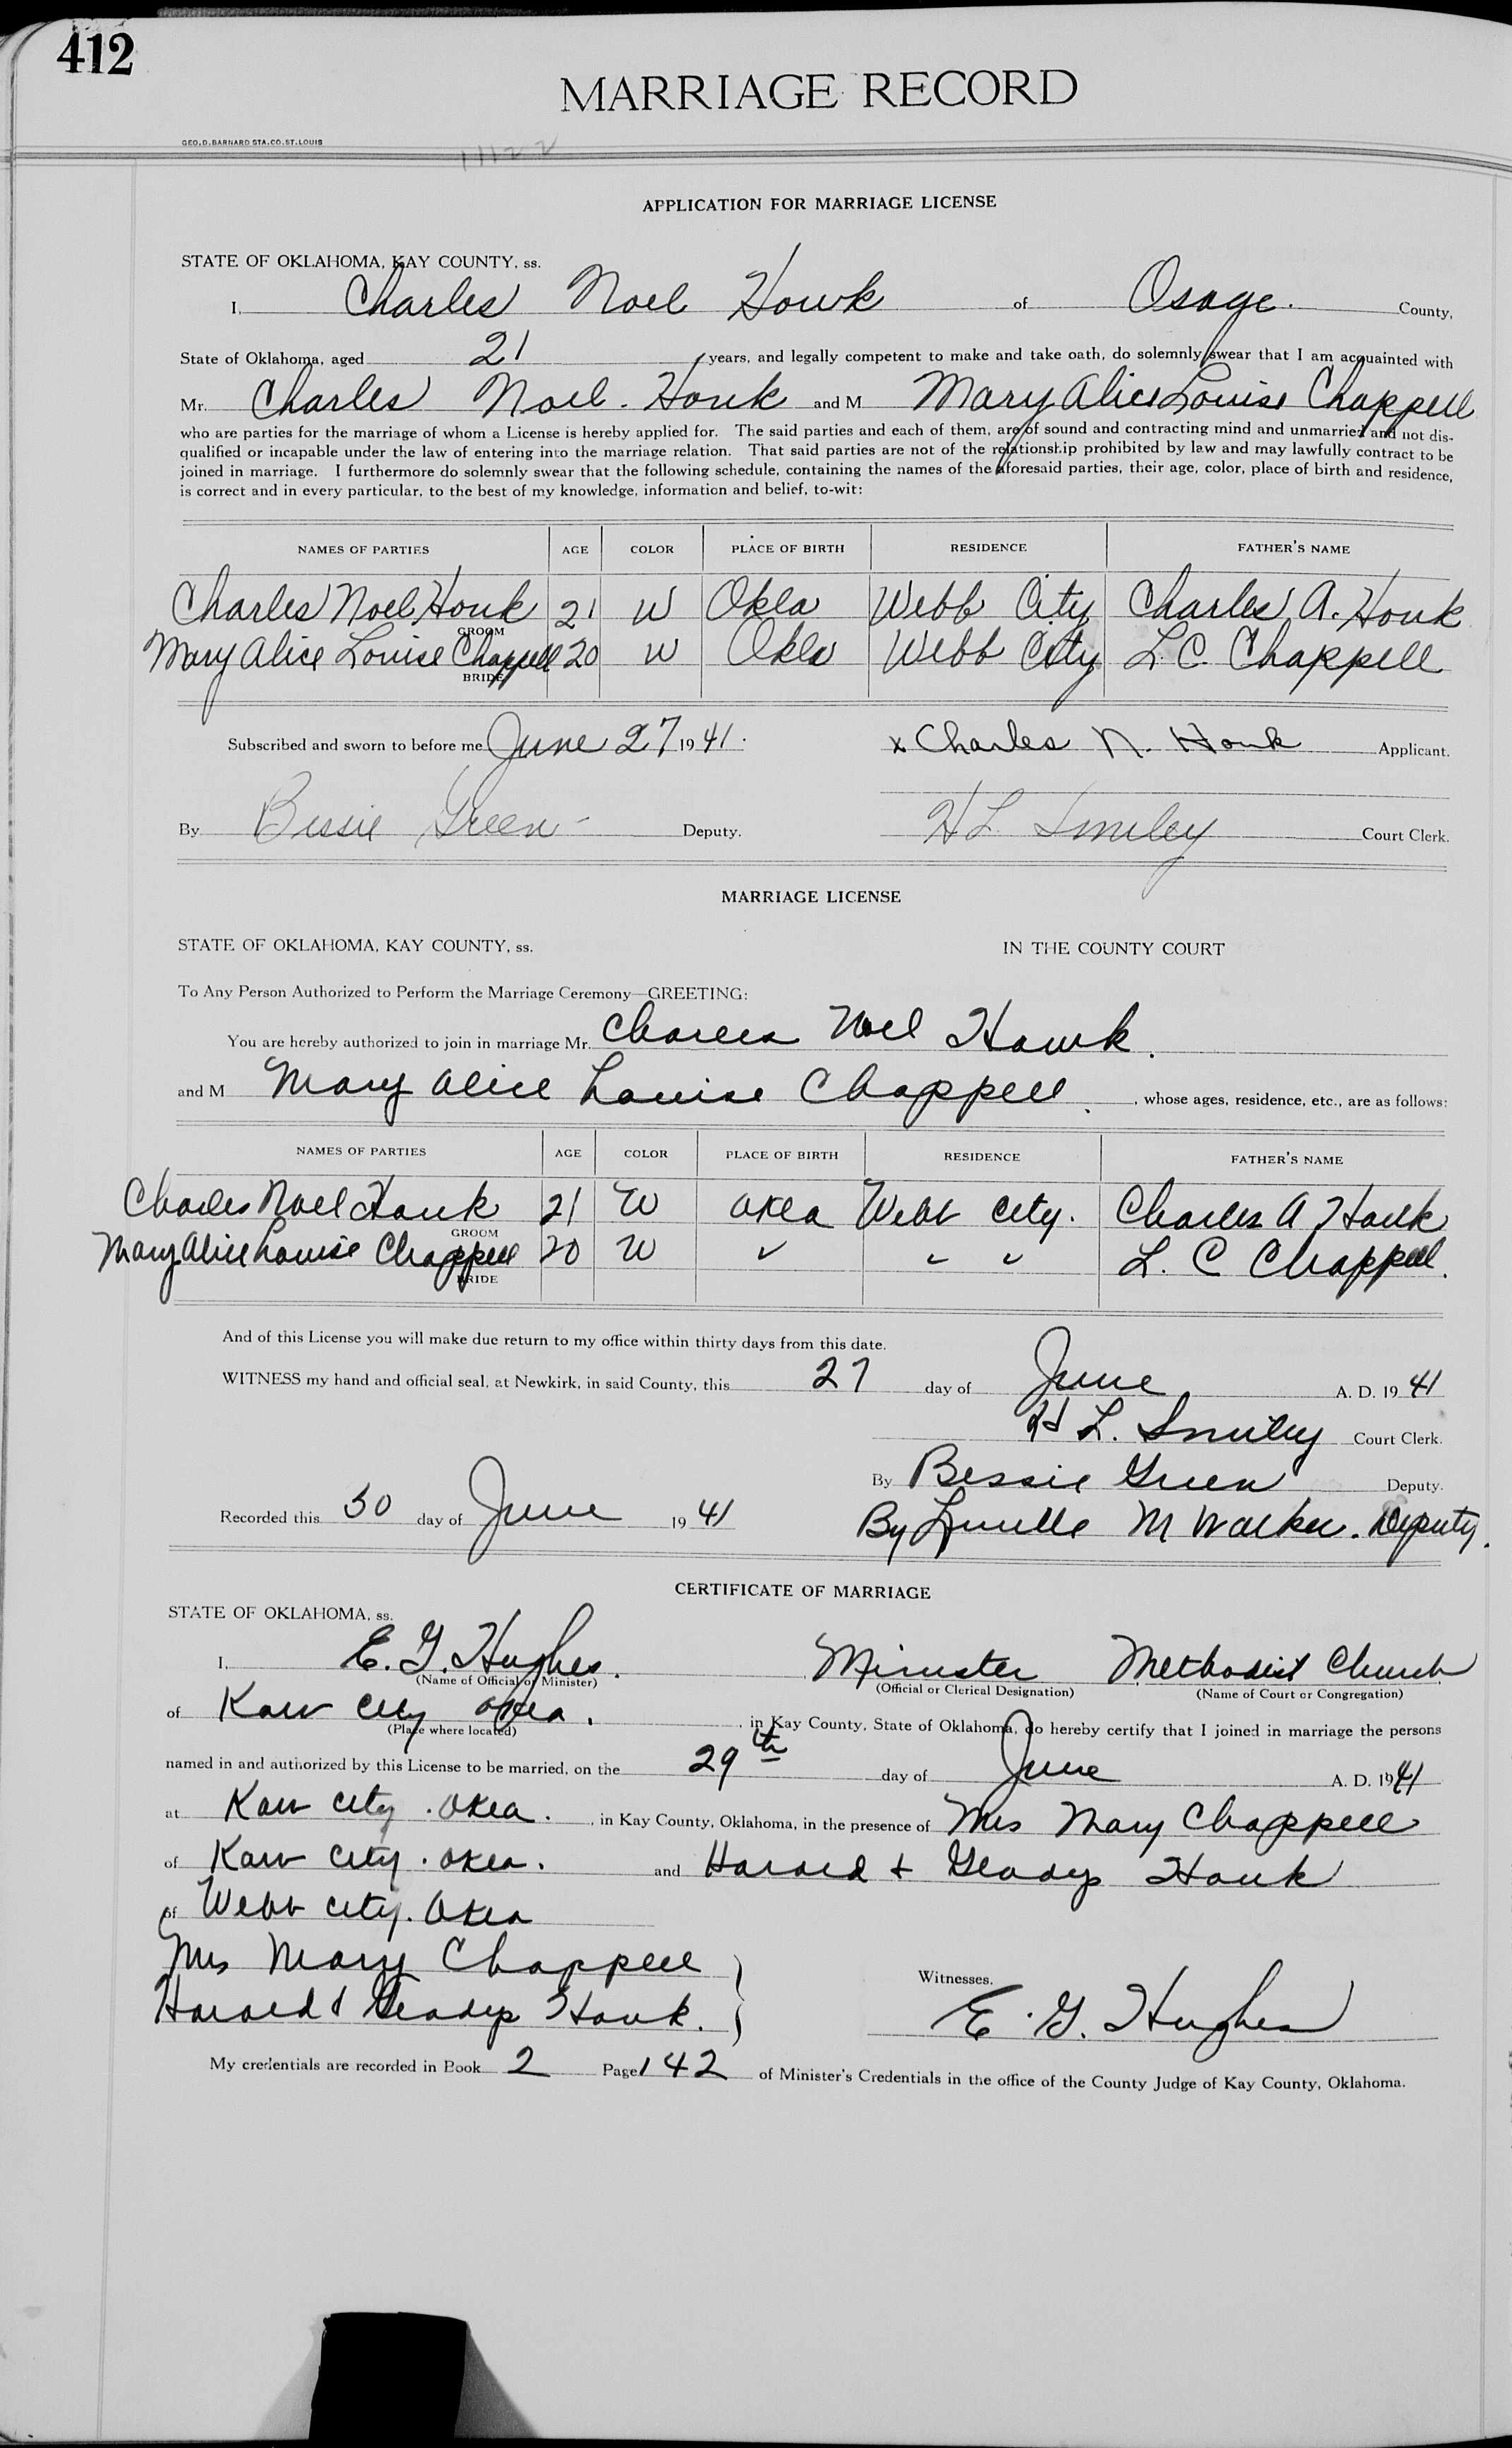 412
MARRIAGE RECORD
GEO. D. BARNARD STA. CO. ST. LOUIS
11122
APPLICATION FOR MARRIAGE LICENSE
STATE OF OKLAHOMA, KAY COUNTY, ss.
I, Charles Noel Houk of Osage. County,
State of Oklahoma, aged 21 years, and legally competent to make and take oath, do solemnly swear that I am acquainted with
Mr. Charles Noel. Houk and M Mary Alice Louise Chappell
who are parties for the marriage of whom a License is hereby applied for. The said parties and each of them, are of sound and contracting mind and unmarried and not dis-
qualified or incapable under the law of entering into the marriage relation. That said parties are not of the relationship prohibited by law and may lawfully contract to be
joined in marriage. I furthermore do solemnly swear that the following schedule, containing the names of the aforesaid parties, their age, color, place of birth and residence,
is correct and in every particular, to the best of my knowledge, information and belief, to-wit:
NAMES OF PARTIES AGE COLOR PLACE OF BIRTH RESIDENCE FATHER'S NAME
Charles Noel Houk 21 W Okla Webb City Charles A. Houk
GROOM
Mary Alice Louise Chappell 20 W Okla Webb City L. C. Chappell
BRIDE
Subscribed and sworn to before me June 27 1941. x Charles N. Houk Applicant.
By Bessie Green Deputy. H L Smiley Court Clerk.
MARRIAGE LICENSE
STATE OF OKLAHOMA, KAY COUNTY, ss. IN THE COUNTY COURT
To Any Person Authorized to Perform the Marriage Ceremony—GREETING:
You are hereby authorized to join in marriage Mr. Charles Noel Houk.
and M Mary Alice Louise Chappell., whose ages, residence, etc., are as follows:
NAMES OF PARTIES AGE COLOR PLACE OF BIRTH RESIDENCE FATHER'S NAME
Charles Noel Houk 21 W Okla Webb City. Charles A Houk
GROOM
Mary Alice Louise Chappell 20 W ✓ ✓ ✓ L. C Chappell.
BRIDE
And of this License you will make due return to my office within thirty days from this date.
WITNESS my hand and official seal, at Newkirk, in said County, this 27 day of June A. D. 1941
H L. Smiley Court Clerk.
By Bessie Green Deputy.
Recorded this 30 day of June 1941 By M Walker. Deputy.
CERTIFICATE OF MARRIAGE
STATE OF OKLAHOMA, ss.
I, E. G. Hughes. Minister Methodist Church
(Name of Official or Minister) (Official or Clerical Designation) (Name of Court or Congregation)
of Kaw City Okla., in Kay County, State of Oklahoma, do hereby certify that I joined in marriage the persons
(Place where located)
named in and authorized by this License to be married, on the 29th day of June A. D. 1941
at Kaw City. Okla., in Kay County, Oklahoma, in the presence of Mrs Mary Chappell
of Kaw City. Okla. and Harold & Gladys Houk
of Webb City. Okla
Mrs Mary Chappell
Witnesses.
Harold & Gladys Houk. E. G. Hughes
My credentials are recorded in Book 2 Page 142 of Minister's Credentials in the office of the County Judge of Kay County, Oklahoma.